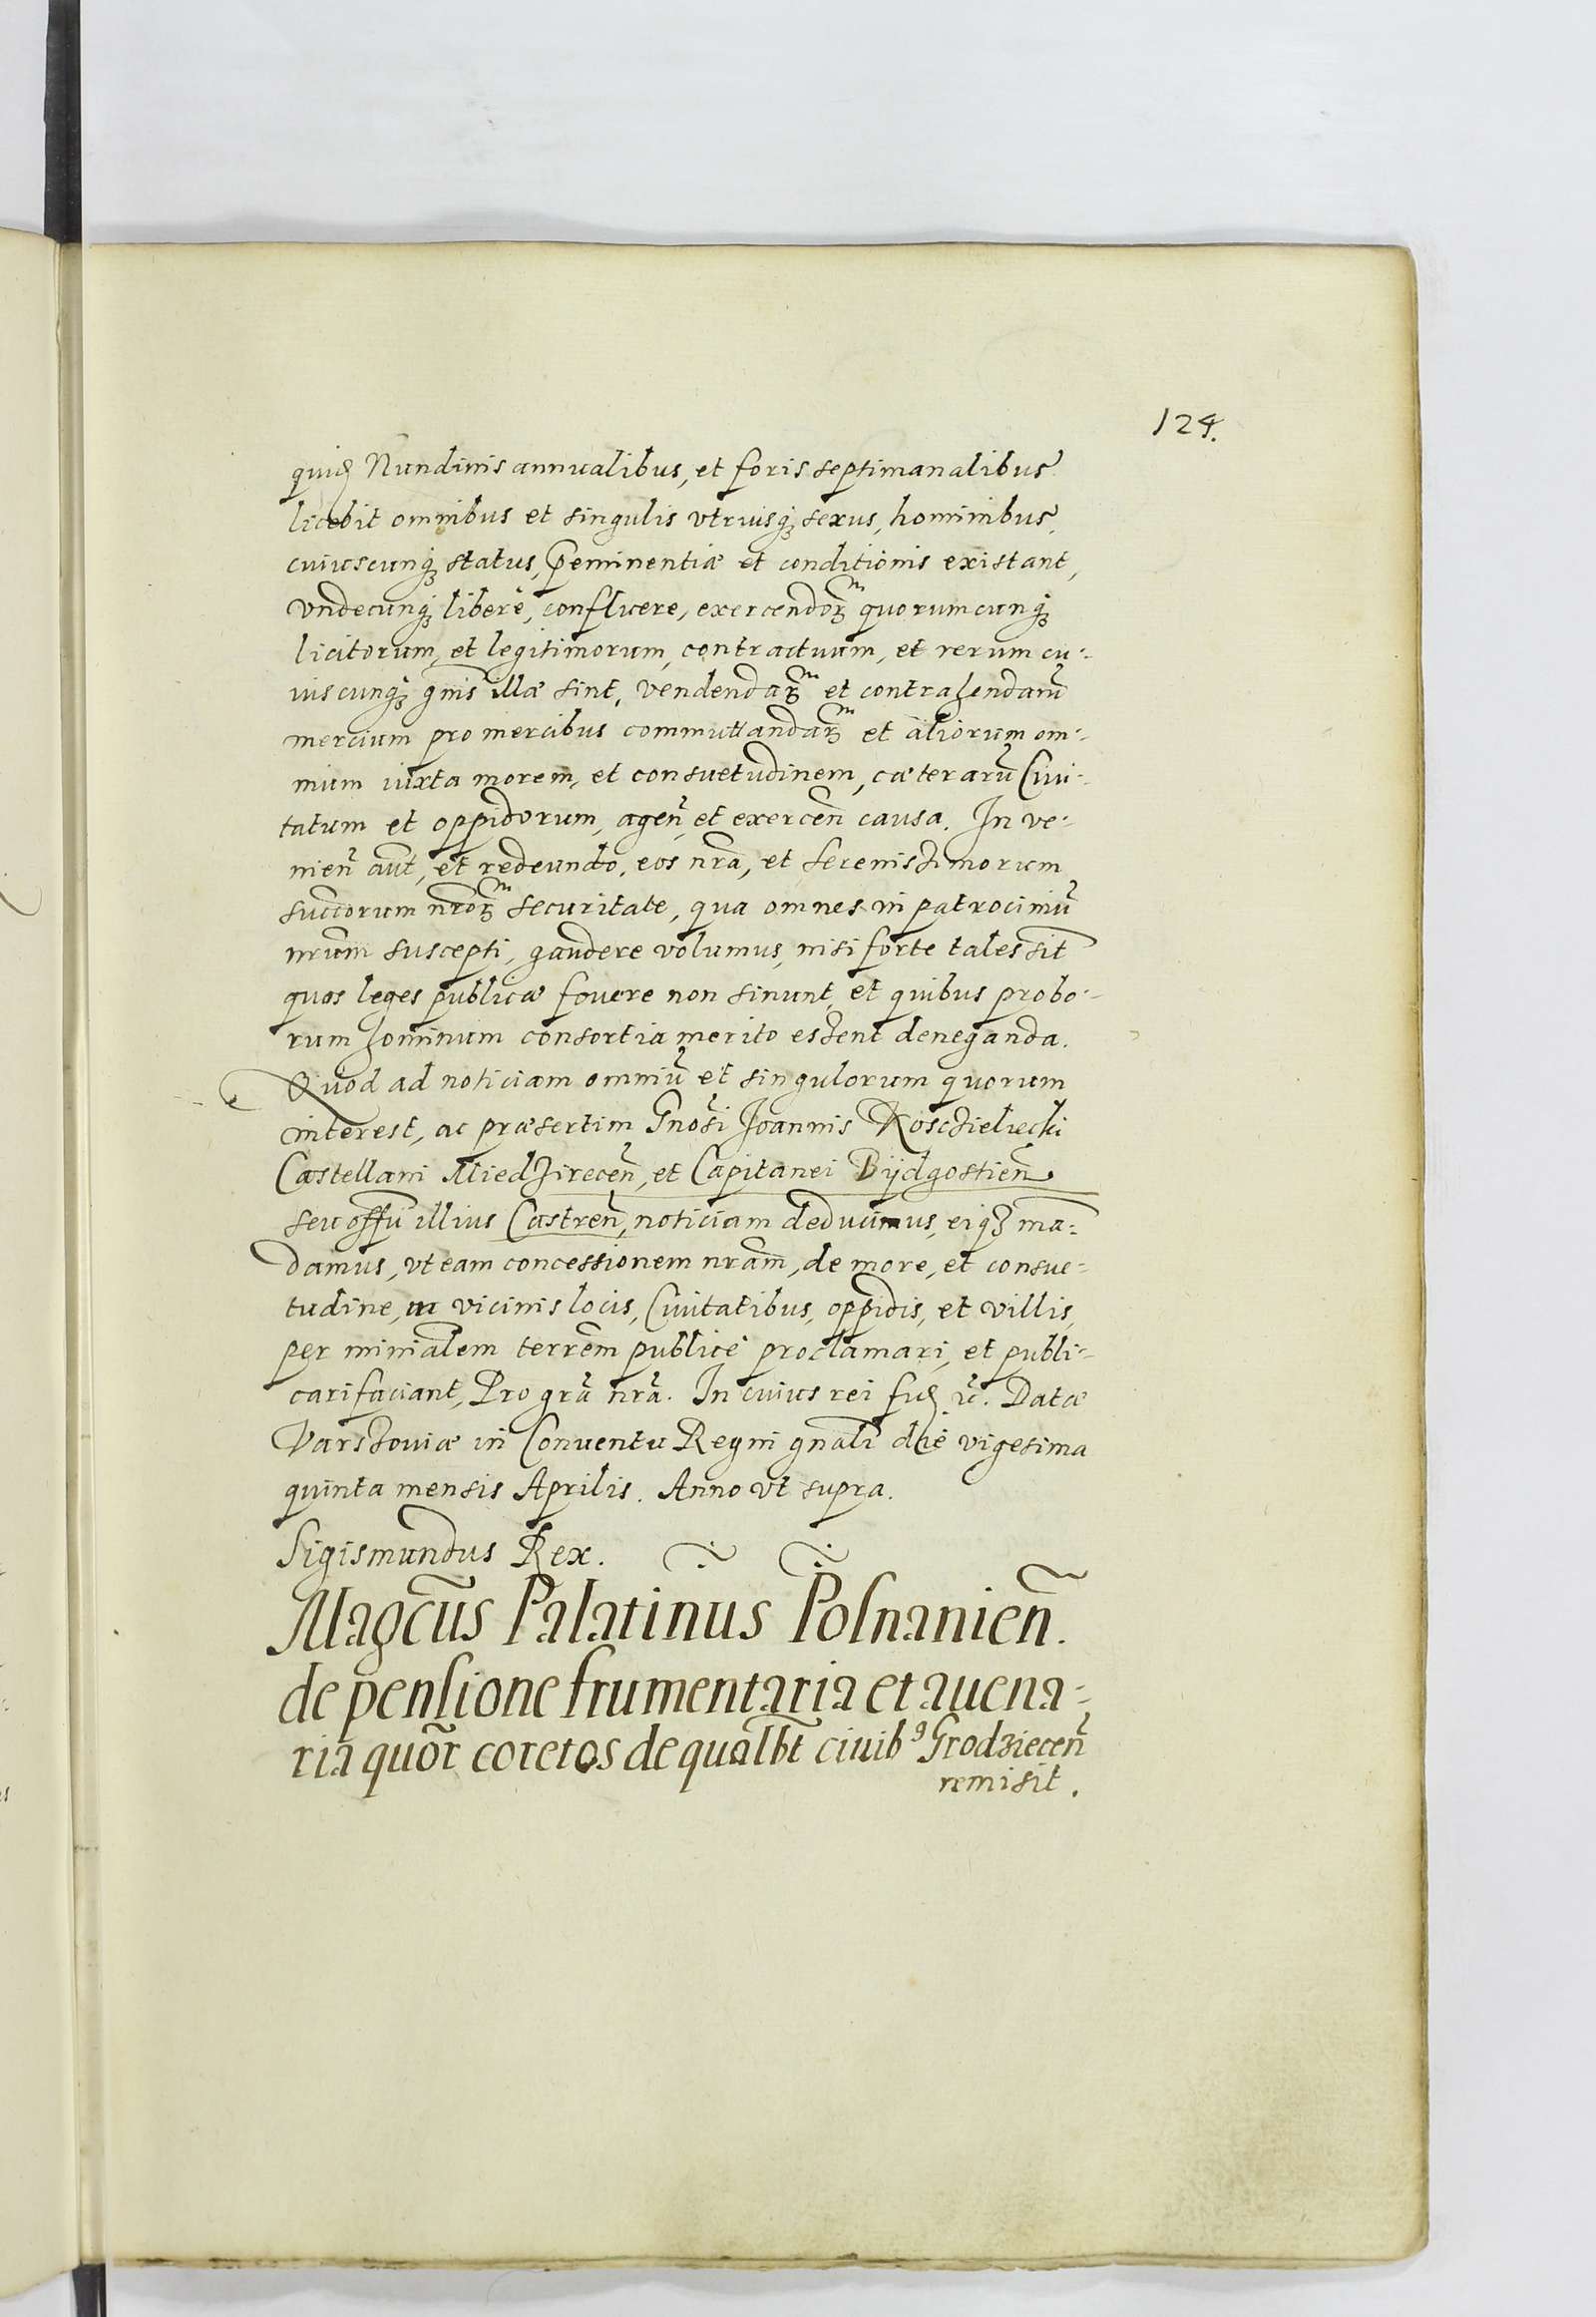 124.
quid Nundinis annualibus, et foris septimanalibus
licebit omnibus et singulis vtriusq; sexus, hominibus,
cuiuscunq; status, p̄eminentiæ et conditionis existant,
vndecunq; liberè, confluere, exercendor̃ quorumcunq;
licitorum, et legitimorum, contractuum, et rerum cu-
iuscunq; gñis illæ sint, vendendar̃ et contrahendarũ
mercium pro mercibus commuttandar̃ et aliorum om-
nium iuxta morem, et consuetudinem, cæterarũ Ciui-
tatum et oppidorum, ageñ et exerceñ causa. In ve-
nieñ aut̃, et redeundo, eos nr̃a, et serenissimorum
succorum nr̃or̃ securitate, qua omnes in patrociniũ
nr̃um suscepti, gaudere volumus, nisi forte tales sit̃
quos leges publicæ fouere non sinunt, et quibus probo-
rum hominum consortia merito essent deneganda.
Quod ad noticiam omniũ et singulorum quorum
interest, ac præsertim Gnõsi Joannis Kosczieliecki
Castellani Miedzireceñ, et Capitanei Bijdgostieñ
seu offii illius Castreñ, noticiam deducimus, eiq; mã-
damus, vt eam concessionem nr̃am, de more, et consue-
tudine, in vicinis locis, Ciuitatibus, oppidis, et villis,
per miniãlem terrẽm publicè proclamari, et publi-
cari faciant, Pro gr̃a nr̃a. In cuius rei fid̃ ꝛc. Datæ
Varssouiæ in Conuentu Regni gnãli die vigesima
quinta mensis Aprilis. Anno vt supra.
Sigismundus Rex.
Magcũs Palatinus Posnanieñ.
de pensione frumentaria et auena-
ria quor̃ coretos de qualbt̃ ciuibꝰ Grodzieceñ
remisit.